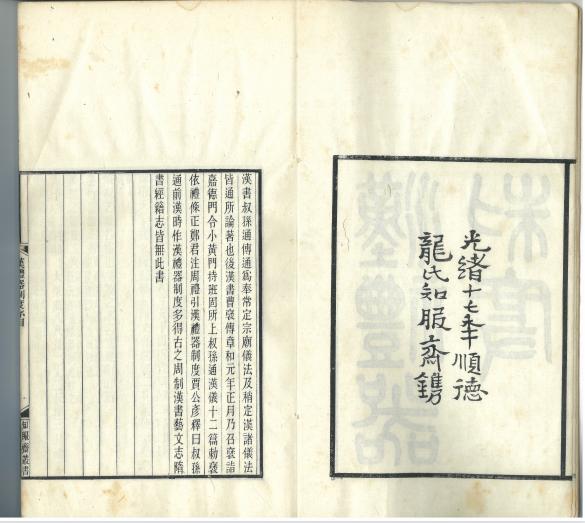 光緒十七年順德
龍氏知服齋鐫
漢書叔孫通傳通爲奉常定宗廟儀法及稍定漢諸儀法
皆通所論著也後漢書曹襃傳章和元年正月乃召襃詣
嘉德門令小黃門持班固所上叔孫通漢儀十二篇勅襃
依禮條正鄭君注周禮引漢禮器制度賈公彥釋曰叔孫
通前漢時作漢禮器制度多得古之周制漢書藝文志隋
書經籍志皆無此書
漢禮器制度序目
一
知服齋叢書